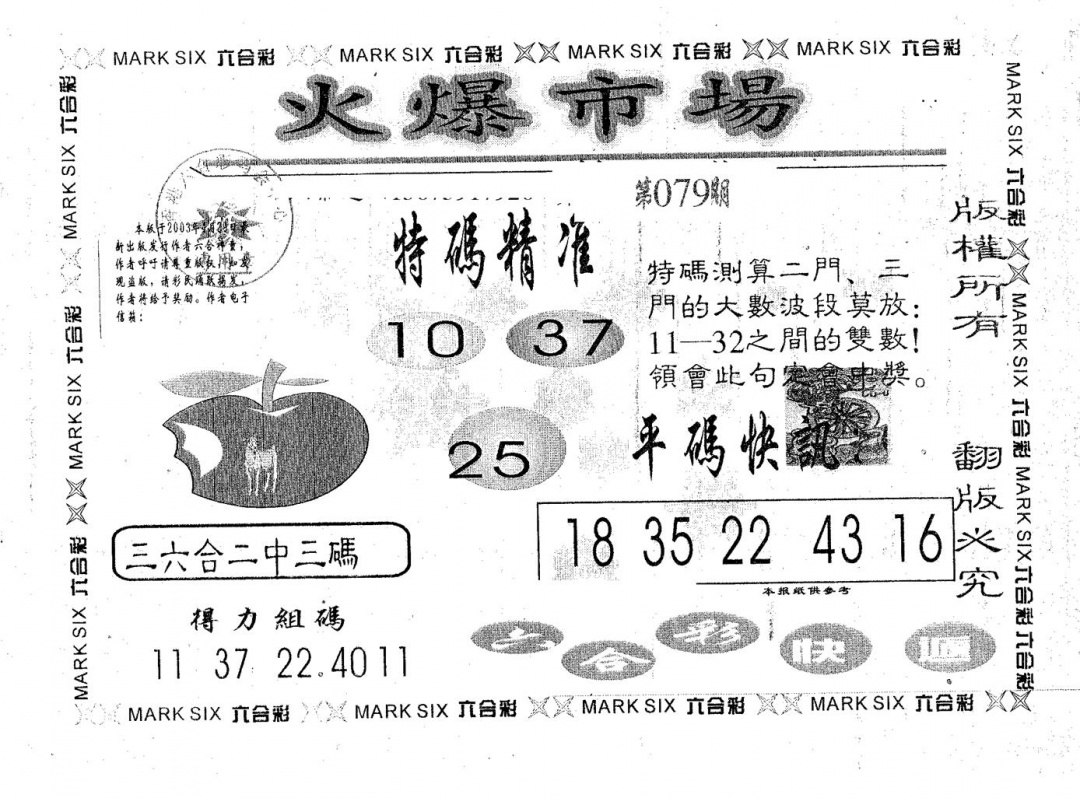 MARK SIX 六合彩 MARK SIX 六合彩 MARK SIX 六合彩 MARK SIX 六合彩
火爆市場
第079期
本版于2003年
新出版发行作者六合神童，
作者呼吁请尊重版权，如发
现盗版，请彩民踊跃揭发，
作者将给予奖励。作者电子
信箱：
特碼精准
10 37
25
特碼測算二門、三
門的大數波段莫放：
11—32之間的雙數！
領會此句定會中獎。
平碼快訊：
18 35 22 43 16
本报纸供参考
三六合二中三碼
得力組碼
11 37 22.40 11
六合彩快遞
版權所有
翻版必究
MARK SIX 六合彩 MARK SIX 六合彩 MARK SIX 六合彩
MARK SIX 六合彩 MARK SIX 六合彩 MARK SIX 六合彩 六合彩
MARK SIX 六合彩 MARK SIX 六合彩 MARK SIX 六合彩 MARK SIX 六合彩